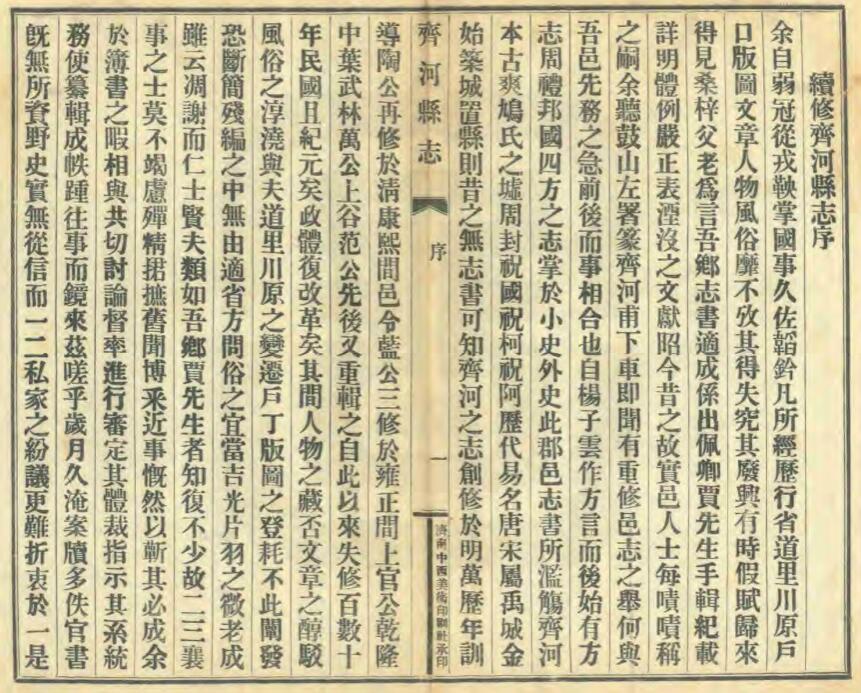 續修齊河縣志序
余自弱冠從戎鞅掌國事久佐韜鈐凡所經歷行省道里川原戶
口版圖文章人物風俗靡不攷其得失究其廢興有時假賦歸來
得見桑梓父老爲言吾鄉志書適成係出佩卿賈先生手輯紀載
詳明體例嚴正表湮沒之文獻昭今昔之故實邑人士每嘖嘖稱
之嗣余聽鼓山左署篆齊河甫下車即聞有重修邑志之舉何與
吾邑先務之急前後而事相合也自楊子雲作方言而後始有方
志周禮邦國四方之志掌於小史外史此郡邑志書所濫觴齊河
本古爽鳩氏之墟周封祝國祝柯祝阿歷代易名唐宋屬禹城金
始築城置縣則昔之無志書可知齊河之志創修於明萬歷年訓
齊河縣志
序
一
濟南中西美術印刷社承印
導陶公再修於清康熙間邑令藍公三修於雍正間上官公乾隆
中葉武林萬公上谷范公先後又重輯之自此以來失修百數十
年民國且紀元矣政體復改革矣其間人物之臧否文章之醇駁
風俗之淳澆與夫道里川原之變遷戶丁版圖之登耗不此闡發
恐斷簡殘編之中無由適省方問俗之宜當吉光片羽之微老成
雖云凋謝而仁士賢夫類如吾鄉賈先生者知復不少故二三襄
事之士莫不竭慮殫精捃摭舊聞博釆近事慨然以蘄其必成余
於簿書之暇相與共切討論督率進行審定其體裁指示其系統
務使纂輯成帙踵往事而鏡來茲嗟乎歲月久淹案牘多佚官書
旣無所資野史實無從信而一二私家之紛議更難折衷於一是